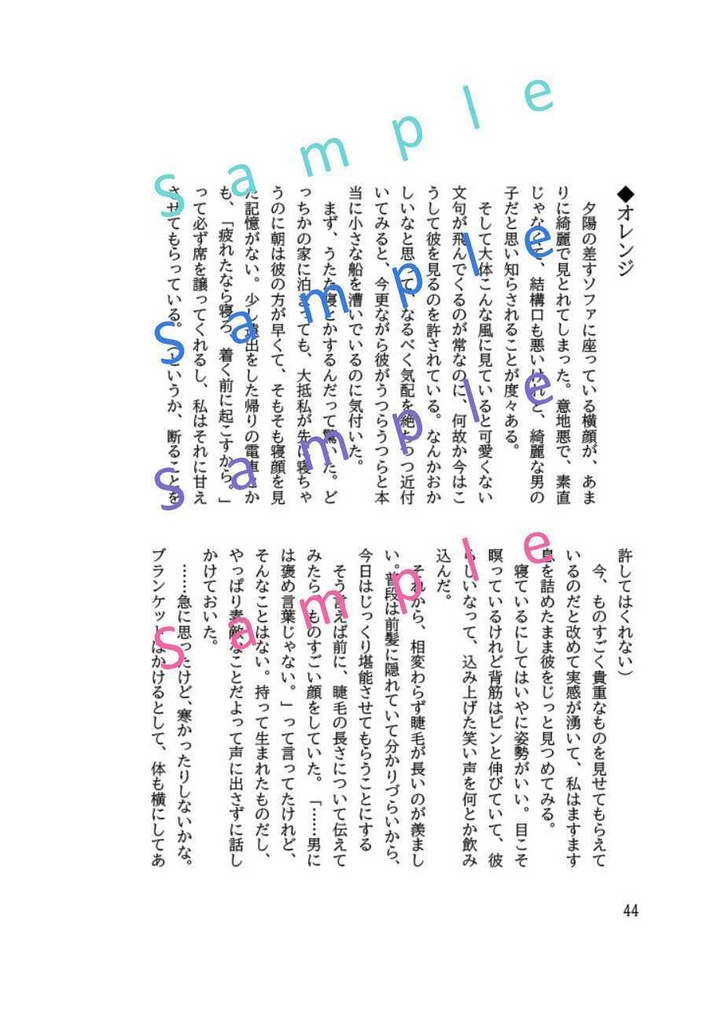 ◆オレンジ
夕陽の差すソファに座っている横顔が、あま
りに綺麗で見とれてしまった。意地悪で、素直
じゃなくて、結構口も悪いけれど、綺麗な男の
子だと思い知らされることが度々ある。
そして大体こんな風に見ていると可愛くない
文句が飛んでくるのが常なのに、何故か今はこ
うして彼を見るのを許されている。なんかおか
しいなと思って、なるべく気配を絶ちつつ近付
いてみると、今更ながら彼がうつらうつらと本
当に小さな船を漕いでいるのに気付いた。
まず、うたた寝とかするんだって驚いた。ど
っちかの家に泊まっても、大抵私が先に寝ちゃ
うのに朝は彼の方が早くて、そもそも寝顔を見
た記憶がない。少し遠出をした帰りの電車とか
も、「疲れたなら寝ろ、着く前に起こすから。」
って必ず席を譲ってくれるし、私はそれに甘え
させてもらっている。（というか、断ることを
許してはくれない）
今、ものすごく貴重なものを見せてもらえて
いるのだと改めて実感が湧いて、私はますます
息を詰めたまま彼をじっと見つめてみる。
寝ているにしてはいやに姿勢がいい。目こそ
瞑っているけれど背筋はピンと伸びていて、彼
らしいなって、込み上げた笑い声を何とか飲み
込んだ。
それから、相変わらず睫毛が長いのが羨まし
い。普段は前髪に隠れていて分かりづらいから、
今日はじっくり堪能させてもらうことにする
そう言えば前に、睫毛の長さについて伝えて
みたら、ものすごい顔をしていた。「……男に
は褒め言葉じゃない。」って言ってたけれど、
そんなことはない。持って生まれたものだし、
やっぱり素敵なことだよって声に出さずに話し
かけておいた。
……急に思ったけど、寒かったりしないかな。
ブランケットはかけるとして、体も横にしてあ
44
Sample
Sample
Sample
Sample